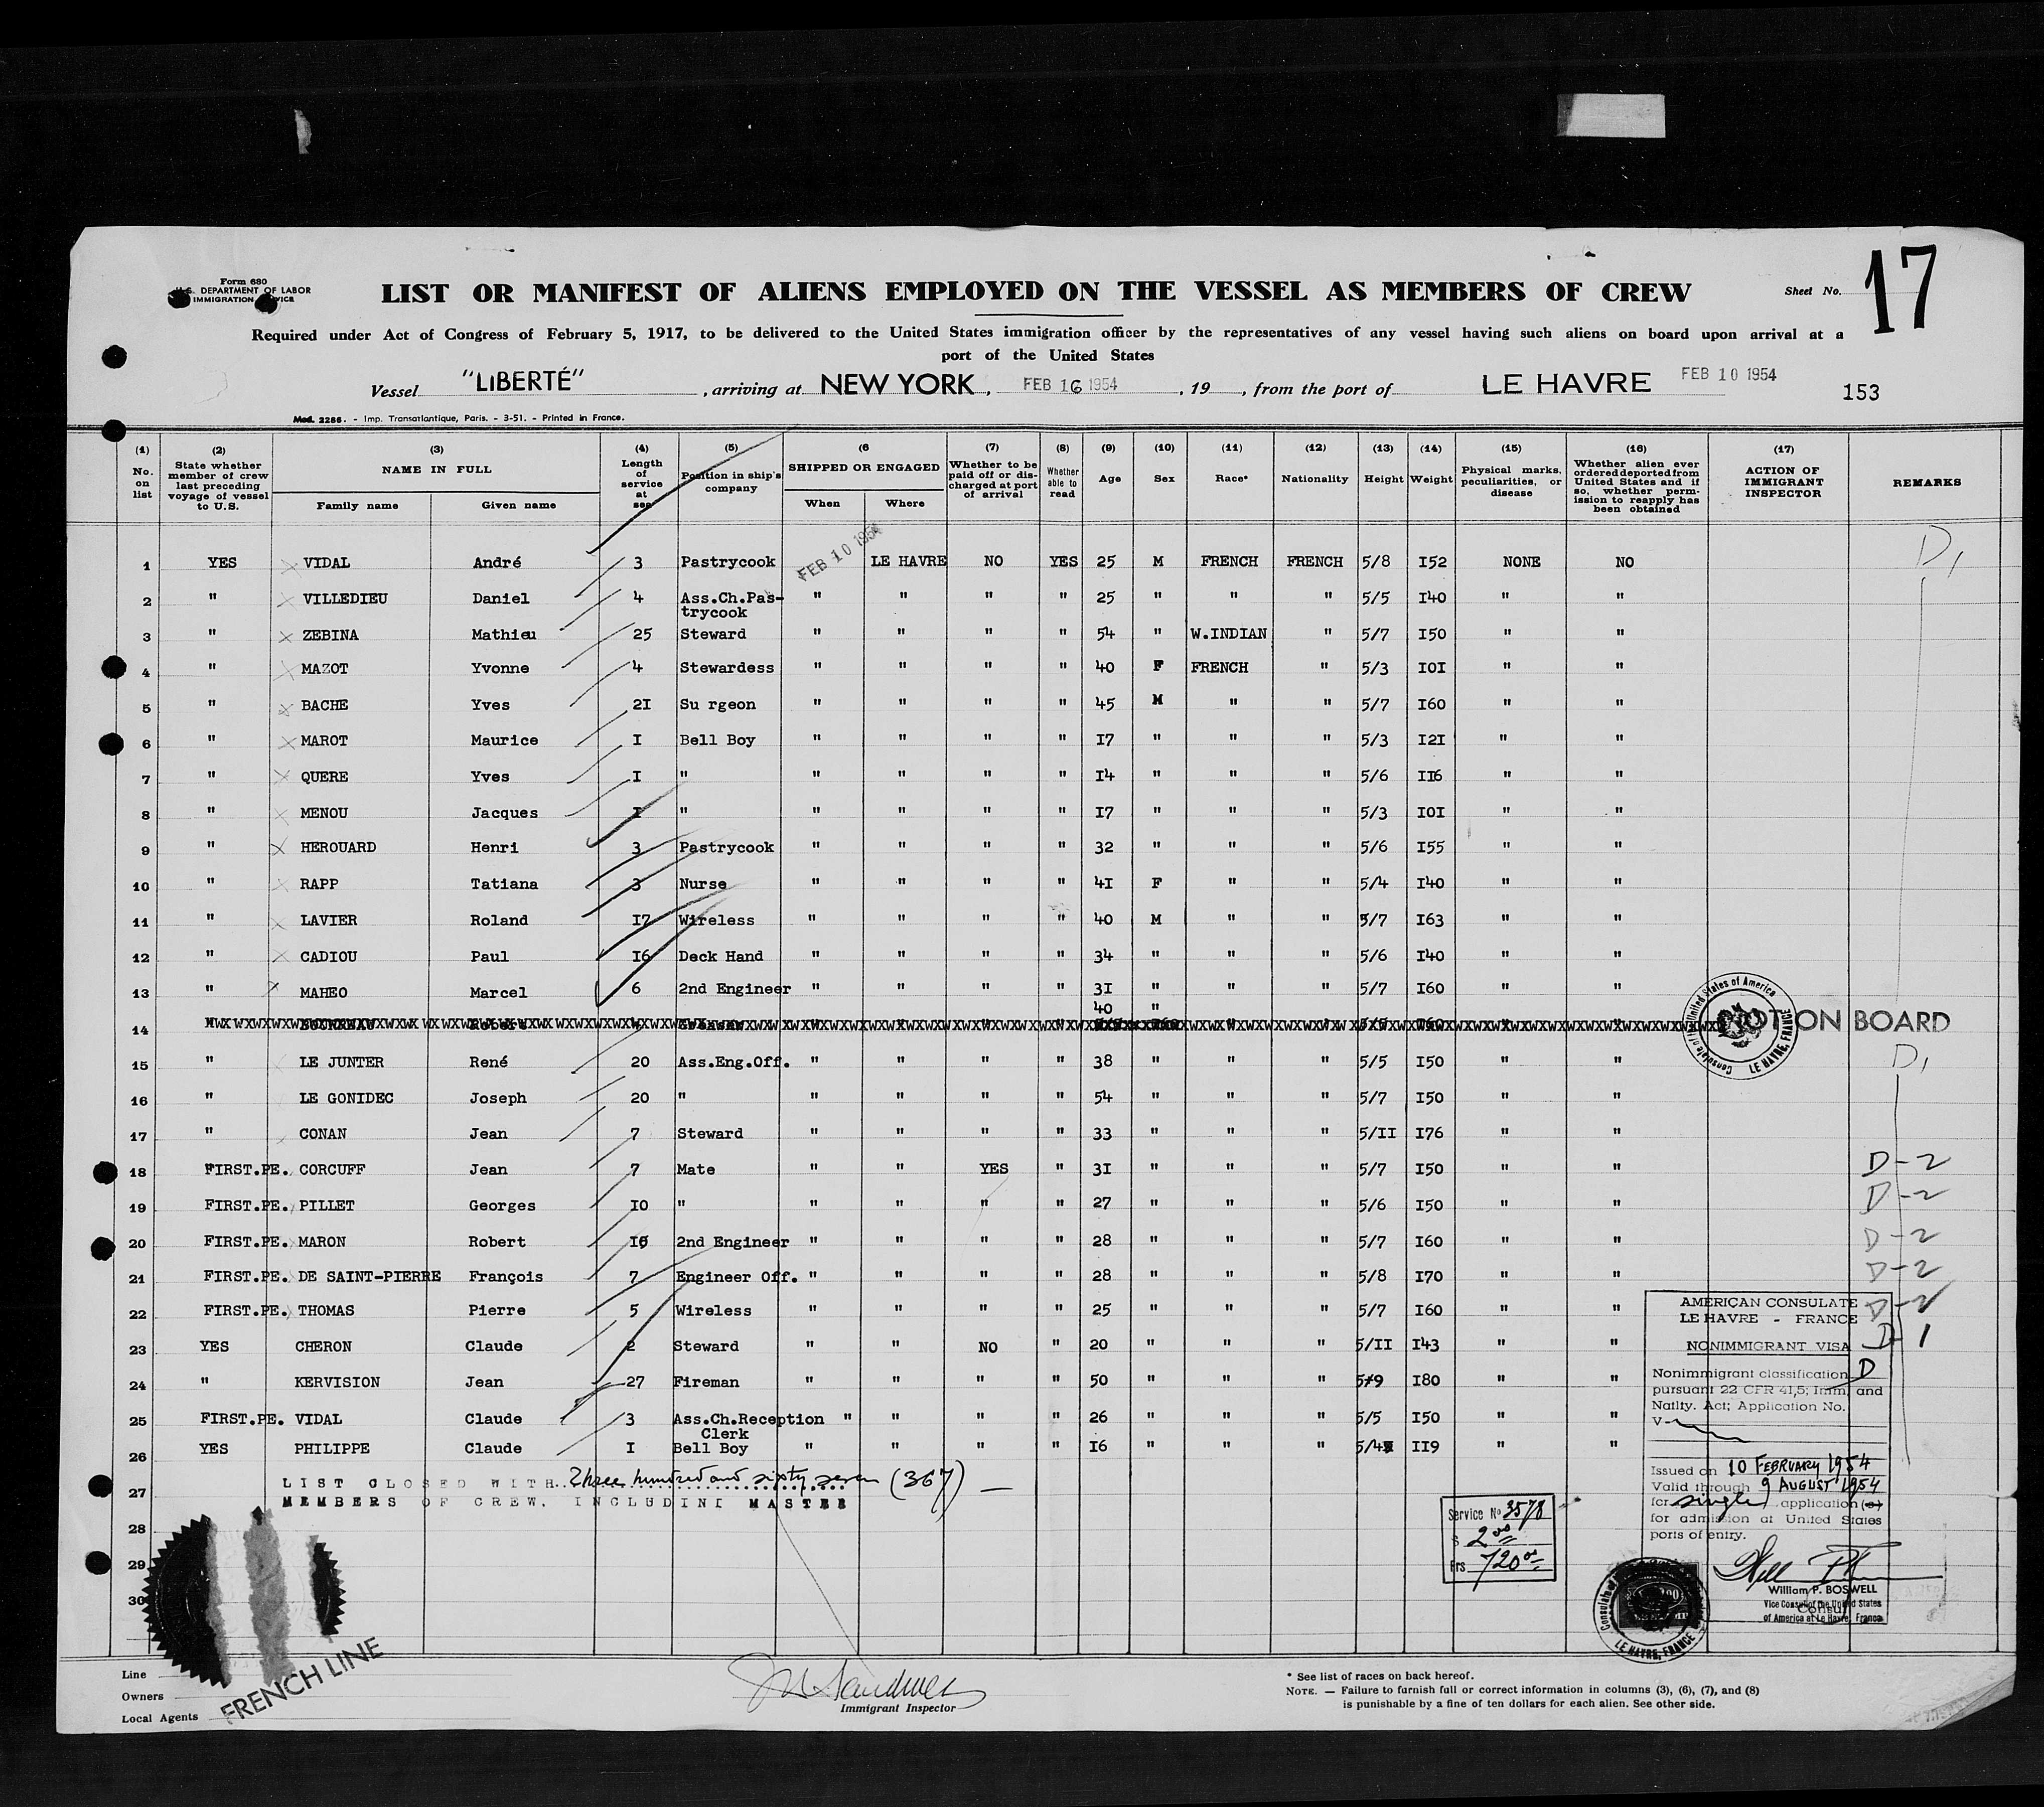 Form 680
U.S. DEPARTMENT OF LABOR
IMMIGRATION SERVICE
LIST OR MANIFEST OF ALIENS EMPLOYED ON THE VESSEL AS MEMBERS OF CREW
Sheet No. 17
Required under Act of Congress of February 5, 1917, to be delivered to the United States immigration officer by the representatives of any vessel having such aliens on board upon arrival at a
port of the United States
Vessel "LIBERTÉ", arriving at NEW YORK, FEB 16 1954, 19 , from the port of LE HAVRE FEB 10 1954
153
Mod. 2286. - Imp. Transatlantique, Paris. - 3-51. - Printed in France.
(1) No. on list
(2) State whether member of crew last preceding voyage of vessel to U.S.
(3) NAME IN FULL
Family name
Given name
(4) Length of service at sea
(5) Position in ship's company
(6 SHIPPED OR ENGAGED
When
Where
(7) Whether to be paid off or discharged at port of arrival
(8) Whether able to read
(9) Age
(10) Sex
(11) Race*
(12) Nationality
(13) Height
(14) Weight
(15) Physical marks, peculiarities, or disease
(16) Whether alien ever ordered deported from United States and if so, whether permission to reapply has been obtained
(17) ACTION OF IMMIGRANT INSPECTOR
REMARKS
1 YES VIDAL André 3 Pastrycook FEB 10 1954 LE HAVRE NO YES 25 M FRENCH FRENCH 5/8 I52 NONE NO D1
2 " VILLEDIEU Daniel 4 Ass.Ch.Pas-trycook " " " " 25 " " " 5/5 I40 " "
3 " ZEBINA Mathieu 25 Steward " " " " 54 " W.INDIAN " 5/7 I50 " "
4 " MAZOT Yvonne 4 Stewardess " " " " 40 F FRENCH " 5/3 I0I " "
5 " BACHE Yves 2I Su rgeon " " " " 45 M " " 5/7 I60 " "
6 " MAROT Maurice I Bell Boy " " " " I7 " " " 5/3 I2I " "
7 " QUERE Yves I " " " " " I4 " " " 5/6 II6 " "
8 " MENOU Jacques I " " " " " I7 " " " 5/3 I0I " "
9 " HEROUARD Henri 3 Pastrycook " " " " 32 " " " 5/6 I55 " "
10 " RAPP Tatiana 3 Nurse " " " " 4I F " " 5/4 I40 " "
11 " LAVIER Roland I7 Wireless " " " " 40 M " " 5/7 I63 " "
12 " CADIOU Paul I6 Deck Hand " " " " 34 " " " 5/6 I40 " "
13 " MAHEO Marcel 6 2nd Engineer " " " " 3I " " " 5/7 I60 " "
40 "
14 NOT ON BOARD
15 " LE JUNTER René 20 Ass.Eng.Off. " " " " 38 " " " 5/5 I50 " " D1
16 " LE GONIDEC Joseph 20 " " " " " 54 " " " 5/7 I50 " "
17 " CONAN Jean 7 Steward " " " " 33 " " " 5/II I76 " "
18 FIRST.PE. CORCUFF Jean 7 Mate " " YES " 3I " " " 5/7 I50 " " D-2
19 FIRST.PE. PILLET Georges I0 " " " " " 27 " " " 5/6 I50 " " D-2
20 FIRST.PE. MARON Robert 2nd Engineer " " " " 28 " " " 5/7 I60 " " D-2
21 FIRST.PE. DE SAINT-PIERRE François 7 Engineer Off. " " " " 28 " " " 5/8 I70 " " D-2
22 FIRST.PE. THOMAS Pierre 5 Wireless " " " " 25 " " " 5/7 I60 " " D-2
23 YES CHERON Claude 2 Steward " " NO " 20 " " " 5/II I43 " " D-1
24 " KERVISION Jean 27 Fireman " " " " 50 " " " 5/9 I80 " "
25 FIRST.PE. VIDAL Claude 3 Ass.Ch.Reception Clerk " " " " 26 " " " 5/5 I50 " "
26 YES PHILIPPE Claude I Bell Boy " " " " I6 " " " 5/4 II9 " "
27 LIST CLOSED WITH Three hundred and sixty seven (367) —
MEMBERS OF CREW, INCLUDING MASTER
28
29
30
Consulate of the United States of America LE HAVRE, FRANCE
AMERICAN CONSULATE
LE HAVRE - FRANCE
NONIMMIGRANT VISA
Nonimmigrant classification D
pursuant 22 CFR 41,5; Imm. and
Natlty. Act; Application No.
V-
Issued on 10 FEBRUARY 1954
Valid through 9 AUGUST 1954
for single application (s)
for admission at United States
ports of entry.
William P. BOSWELL
Vice Consul of the United States
of America at Le Havre, France
Consul
Service No 3578
$ 2 00
Frs 720 00
LE HAVRE, FRANCE
Line
Owners
Local Agents
FRENCH LINE
Immigrant Inspector
* See list of races on back hereof.
NOTE. — Failure to furnish full or correct information in columns (3), (6), (7), and (8)
is punishable by a fine of ten dollars for each alien. See other side.